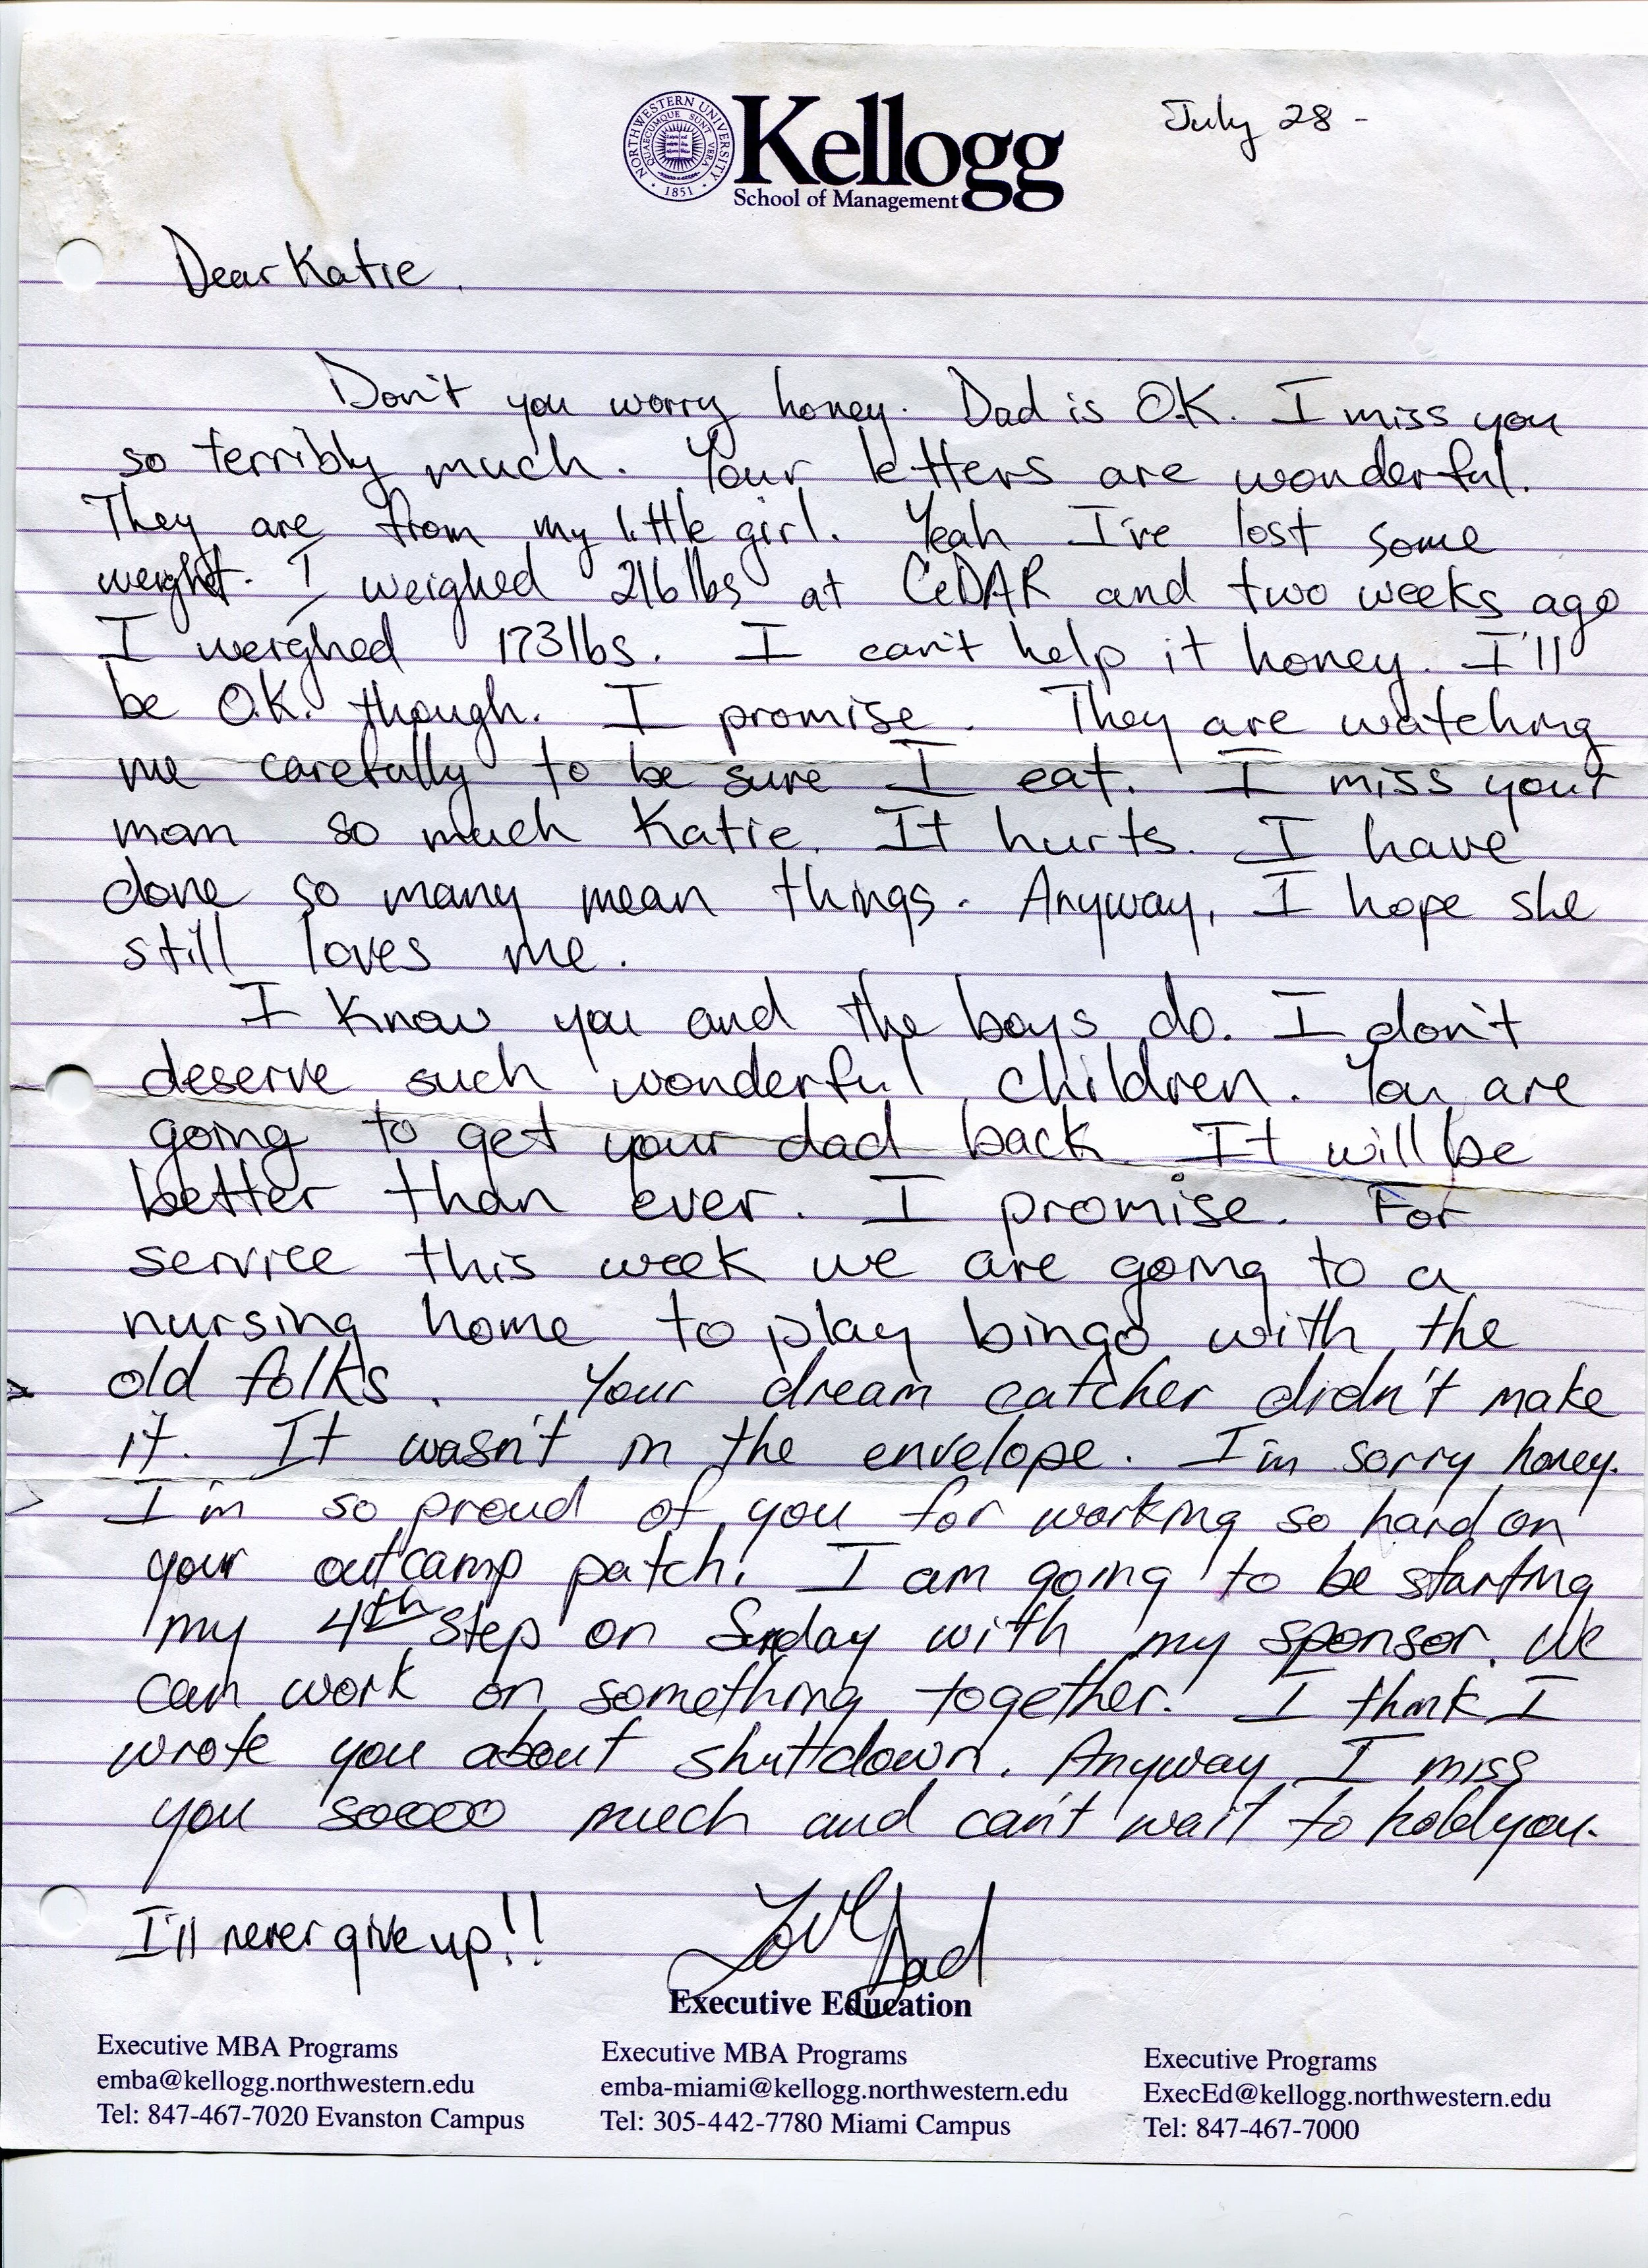 NORTHWESTERN UNIVERSITY
QUAECUMQUE SUNT VERA
1851
Kellogg
School of Management
July 28 -
Dear Katie,
Don't you worry honey. Dad is O.K. I miss you
so terribly much. Your letters are wonderful.
They are from my little girl. Yeah I've lost some
weight. I weighed 216 lbs at CeDAR and two weeks ago
I weighed 173 lbs. I can't help it honey. I'll
be O.K. though. I promise. They are watching
me carefully to be sure I eat. I miss your
mom so much Katie. It hurts. I have
done so many mean things. Anyway, I hope she
still loves me.
I know you and the boys do. I don't
deserve such wonderful children. You are
going to get your dad back. It will be
better than ever. I promise. For
service this week we are going to a
nursing home to play bingo with the
old folks. Your dream catcher didn't make
it. It wasn't in the envelope. I'm sorry honey.
I'm so proud of you for working so hard on
your outcamp patch! I am going to be starting
my 4th step on Sunday with my sponsor. We
can work on something together! I think I
wrote you about shuttdown. Anyway I miss
you soooo much and can't wait to hold you.
I'll never give up!! Love Dad
Executive Education
Executive MBA Programs
emba@kellogg.northwestern.edu
Tel: 847-467-7020 Evanston Campus
Executive MBA Programs
emba-miami@kellogg.northwestern.edu
Tel: 305-442-7780 Miami Campus
Executive Programs
ExecEd@kellogg.northwestern.edu
Tel: 847-467-7000